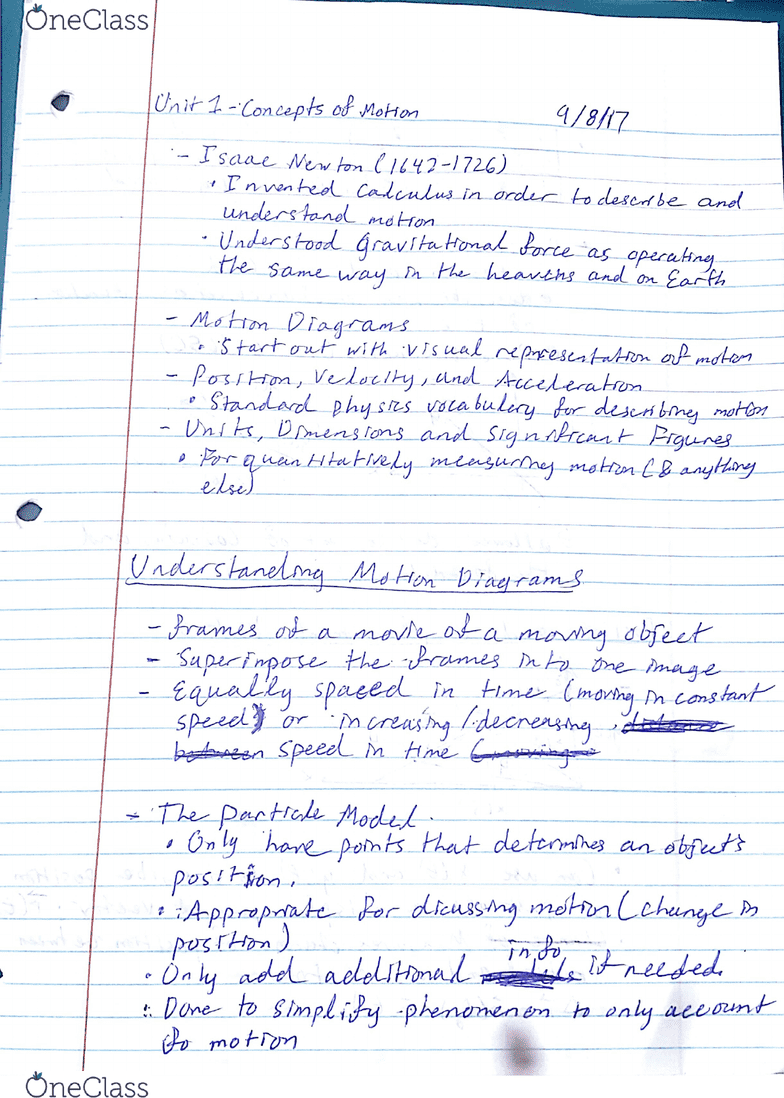 OneClass
Unit 1 - Concepts of Motion 9/8/17
- Isaac Newton (1642-1726)
• Invented Calculus in order to describe and
understand motion
• Understood Gravitational force as operating
the same way in the heavens and on Earth
- Motion Diagrams
• Start out with visual representation of motion
- Position, Velocity, and Acceleration
• Standard physics vocabulary for describing motion
- Units, Dimensions and Significant Figures
• For quantitatively measuring motion (& anything
else)
Understanding Motion Diagrams
- frames of a movie of a moving object
- Superimpose the frames into one image
- Equally spaced in time (moving in constant
speed) or increasing/decreasing, distance
between speed in time (moving
- The Particle Model
• Only have points that determines an object's
position.
• Appropriate for discussing motion (change in
position)
• Only add additional info if needed.
• Done to simplify phenomenon to only account
fo motion
OneClass